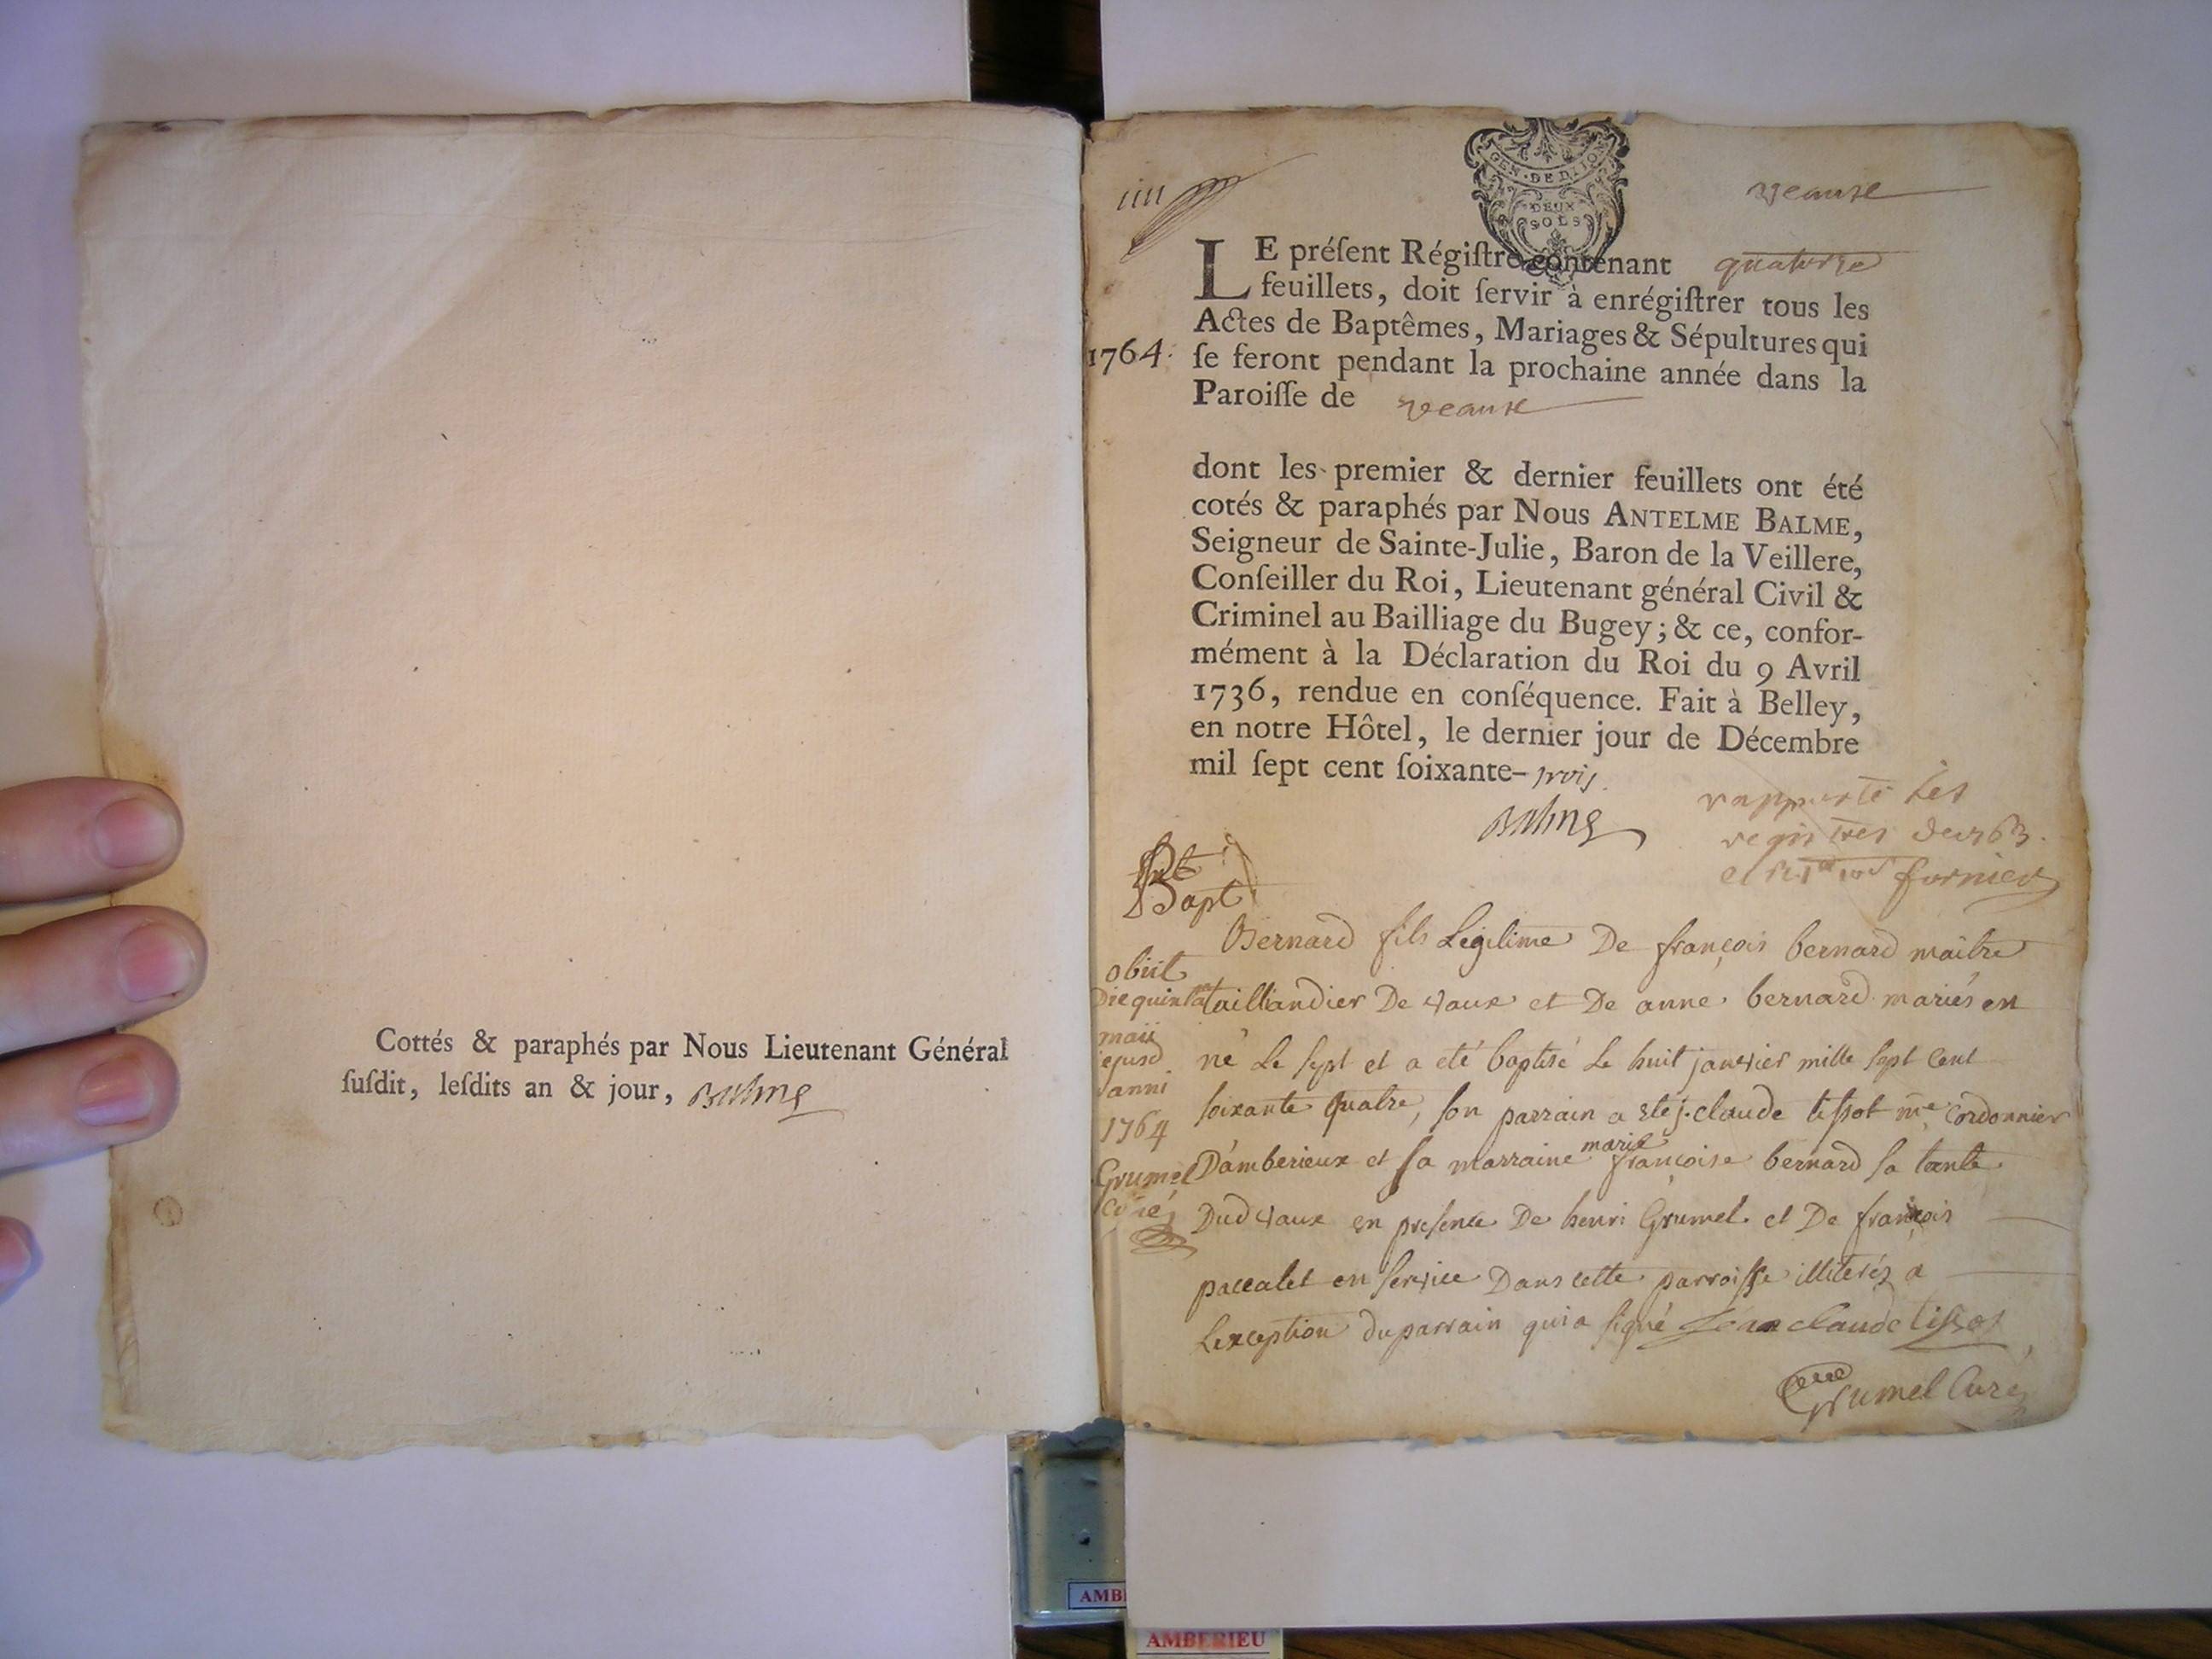 Cottés & paraphés par Nous Lieutenant Général
ſuſdit, leſdits an & jour, Balme
GEN·DE DIJON
DEUX
SOLS
veaux
LE préſent Régiſtre contenant quatorze
feuillets, doit ſervir à enrégiſtrer tous les
Actes de Baptêmes, Mariages & Sépultures qui
1764. ſe feront pendant la prochaine année dans la
Paroiſſe de veaux
dont les premier & dernier feuillets ont été
cotés & paraphés par Nous ANTELME BALME,
Seigneur de Sainte-Julie, Baron de la Veillere,
Conſeiller du Roi, Lieutenant général Civil &
Criminel au Bailliage du Bugey; & ce, confor-
mément à la Déclaration du Roi du 9 Avril
1736, rendue en conſéquence. Fait à Belley,
en notre Hôtel, le dernier jour de Décembre
mil ſept cent ſoixante-trois.
Balme
rapporté les
registres de 1763.
fornier
Bapt
obiit
Die quinta
maii
ejusd
anni
1764
Grumel
curé
Bernard fils Légitime De françois bernard maitre
taillandier De vaux et De anne bernard mariés en
né Le sept et a eté baptisé Le huit janvier mille sept cent
soixante quatre, son parrain a eté j. claude tissot me cordonnier
D'amberieux et sa marraine marie françoise bernard sa tante
Dud vaux en presence De henri Grumel et De françois
paccalet en service Dans cette parroisse illiterés a
Lexception du parrain qui a signé Jean claude tissot
Grumel Curé
AMBE
AMBERIEU